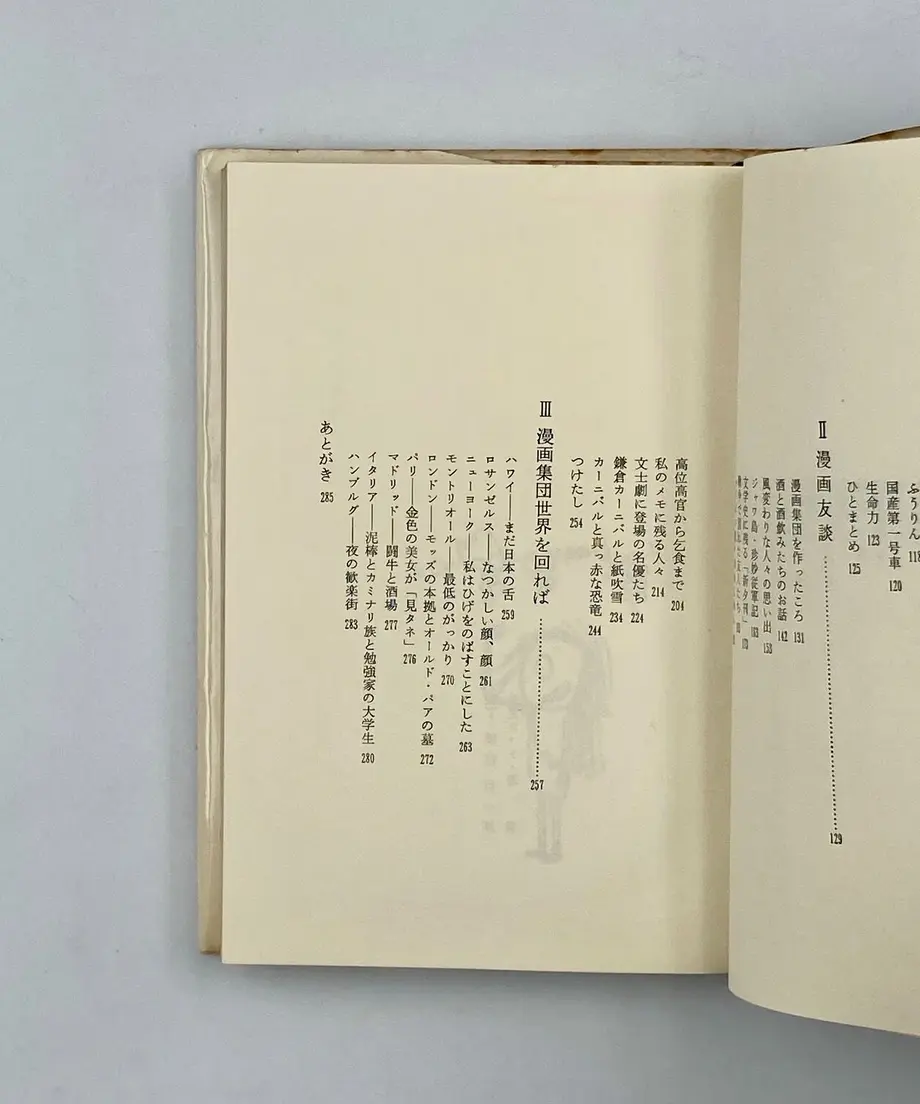 ふうりん 118
国産第一号車 120
生命力 123
ひとまとめ 125
Ⅱ 漫画友談 129
漫画集団を作ったころ 131
酒と酒飲みたちのお話 142
風変わりな人々の思い出 153
ジャワ島・珍妙従軍記 163
文学史に残る「新夕刊」 173
高位高官から乞食まで 204
私のメモに残る人々 214
文士劇に登場の名優たち 224
鎌倉カーニバルと紙吹雪 234
カーニバルと真っ赤な恐竜 244
つけたし 254
Ⅲ 漫画集団世界を回れば 257
ハワイ――まだ日本の舌 259
ロサンゼルス――なつかしい顔、顔 261
ニューヨーク――私はひげをのばすことにした 263
モントリオール――最低のがっかり 270
ロンドン――モッズの本拠とオールド・パアの墓 272
パリ――金色の美女が「見タネ」 276
マドリッド――闘牛と酒場 277
イタリア――泥棒とカミナリ族と勉強家の大学生 280
ハンブルグ――夜の歓楽街 283
あとがき 285